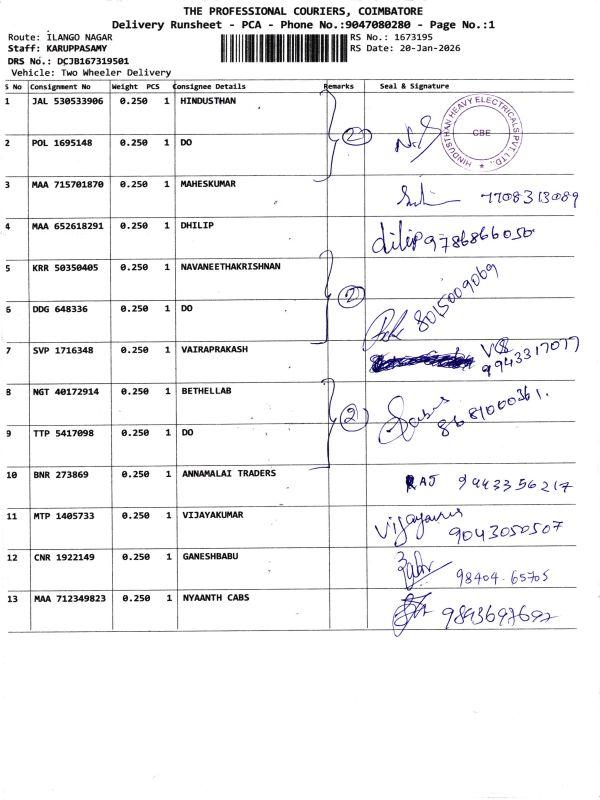 THE PROFESSIONAL COURIERS, COIMBATORE
Delivery Runsheet - PCA - Phone No.:9047080280 - Page No.:1
Route: ILANGO NAGAR RS No.: 1673195
Staff: KARUPPASAMY RS Date: 20-Jan-2026
DRS No.: DCJB167319501
Vehicle: Two Wheeler Delivery
S No Consignment No Weight PCS Consignee Details Remarks Seal & Signature
1 JAL 530533906 0.250 1 HINDUSTHAN
HINDUSTHAN HEAVY ELECTRICALS PVT. LTD. CBE
2 POL 1695148 0.250 1 DO 2
3 MAA 715701870 0.250 1 MAHESKUMAR 7708313089
4 MAA 652618291 0.250 1 DHILIP dilip 9786866050
5 KRR 50350405 0.250 1 NAVANEETHAKRISHNAN
6 DDG 648336 0.250 1 DO 2 8015009069
7 SVP 1716348 0.250 1 VAIRAPRAKASH 9943317077
8 NGT 40172914 0.250 1 BETHELLAB 2 8681000361.
9 TTP 5417098 0.250 1 DO
10 BNR 273869 0.250 1 ANNAMALAI TRADERS RAJ 9443356217
11 MTP 1405733 0.250 1 VIJAYAKUMAR 9043050507
12 CNR 1922149 0.250 1 GANESHBABU 98404.65705
13 MAA 712349823 0.250 1 NYAANTH CABS 9843697692